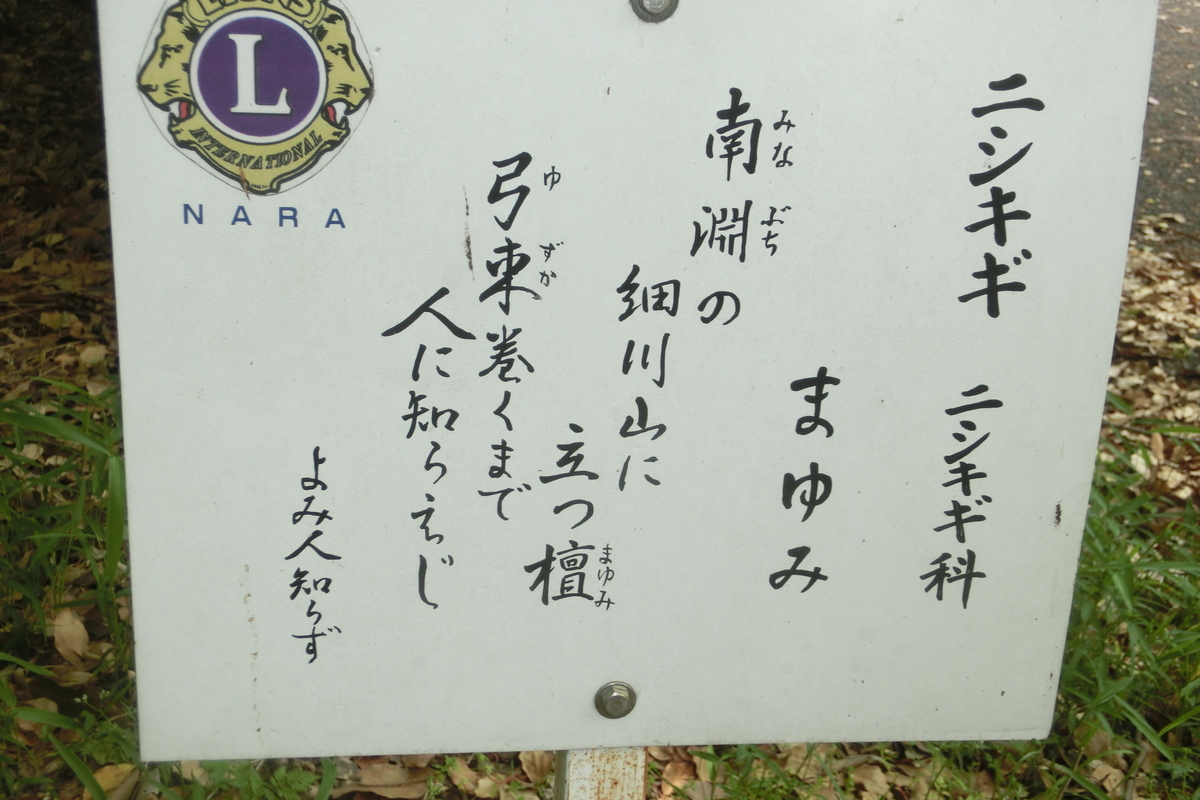 ニシキギ ニシキギ科
まゆみ
南淵の
みなぶち
細川山に
立つ檀
まゆみ
弓束巻くまで
ゆずか
人に知らえじ
よみ人知らず
LIONS
L
INTERNATIONAL
NARA